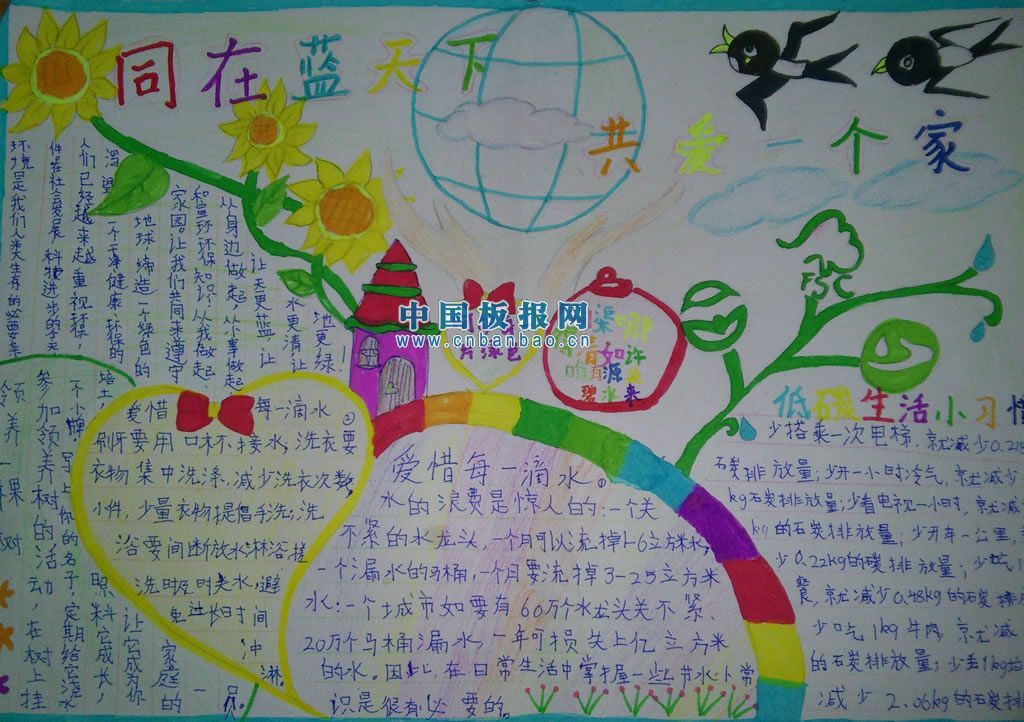 同在蓝天下
共爱一个家
中国板报网
www.cnbanbao.cn
环境是我们人类生存的必要条
件在社会发展科技进步的今天
人们已经越来越重视环保,
渴望一个健康环保的
地球缔造一个绿色的
家园。让我们共同来遵守
和宣环环保知识从我做起
从身边做起从小事做起
让天更蓝让
水更清让
地更绿!
片绿色
渠哪
清如许
唯有源
碧水来
FSC
领养一棵树
参加领养树的活动,在树上挂
不少牌,
写上你的名子,定期给它浇水
照料它成长,
让它成为你
家庭的一员。
爱惜每一滴水。
刷牙要用口杯接水,洗衣要
衣物集中洗涤,减少洗衣次数,
小件,少量衣物提倡手洗;洗
浴要间断放水淋浴搓
洗时及时关水,避
免过长时间
冲
淋。
爱惜每一滴水。
水的浪费是惊人的:一个关
不紧的水龙头,一个月可以流掉1-6立方米水;
一个漏水的马桶,一个月要流掉3-25立方米
水:一个城市如要有60万个水龙头关不紧、
20万个马桶漏水,一年可损失上亿立方米
的水。因此,在日常生活中掌握一些节水小常
识是很有必要的。
低碳生活小习惯
少搭乘一次电梯,就减少0.218
石炭排放量;少开一小时冷气,京尤减少
kg石炭排放量;少看电视一小时,京尤减
kg的石炭排放量;少开车一公里,
少0.22kg的碳排放量;少吃
餐,京尤减少0.48kg的石炭排
少吃1kg牛肉,京尤减
的石炭排放量;少丢1kg垃
减少2.06kg的石炭排